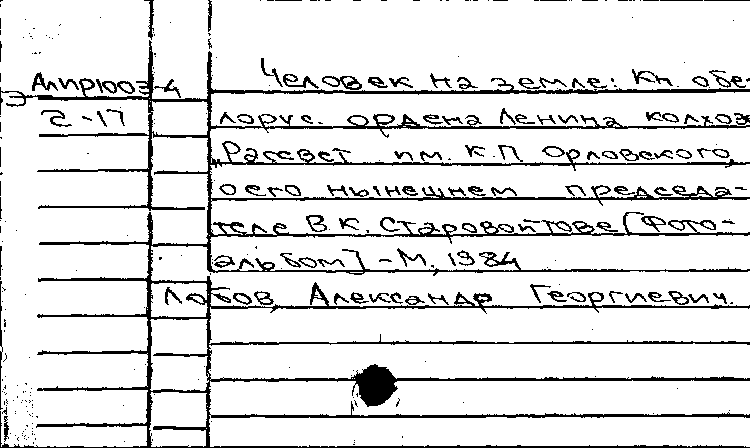 Человек на земле: Кн. о бе-
лорус. ордена Ленина колхозе
„Рассвет им. К.П Орловского,
о его нынешнем председа-
теле В.К. Старовойтове [Фото-
альбом] - М, 1984
Лобов, Александр Георгиевич.